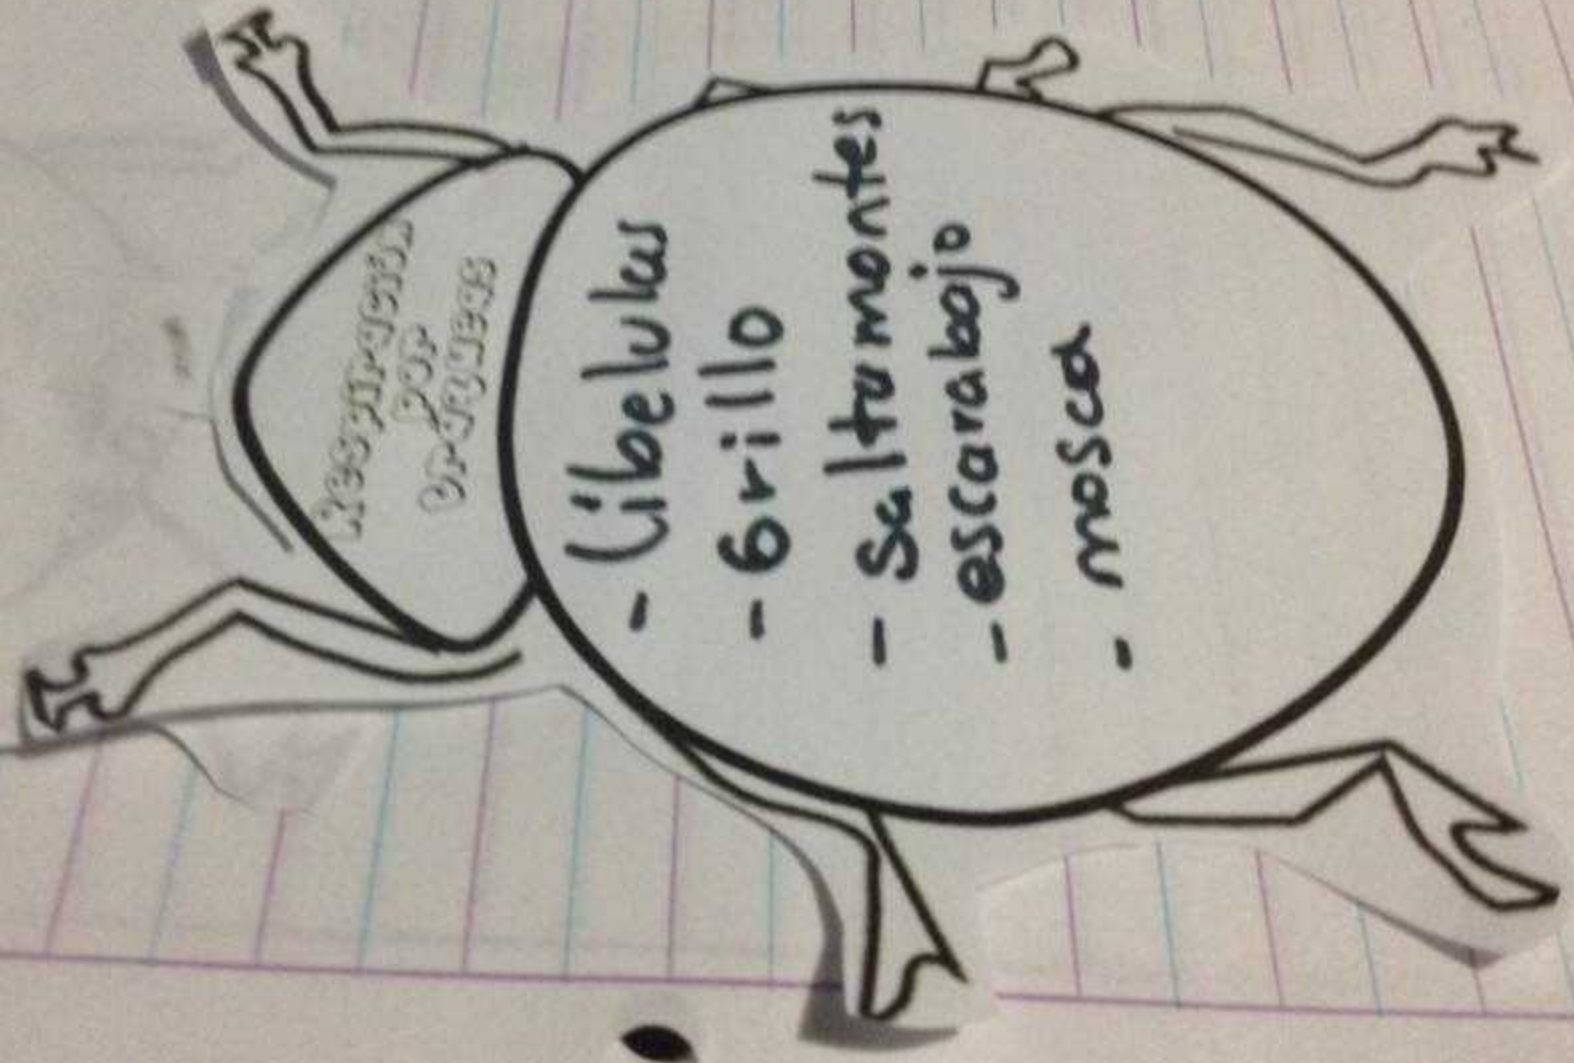 Respiración
por
tráqueas
- libelulas
- Grillo
- Saltamontes
- escarabajo
- mosca